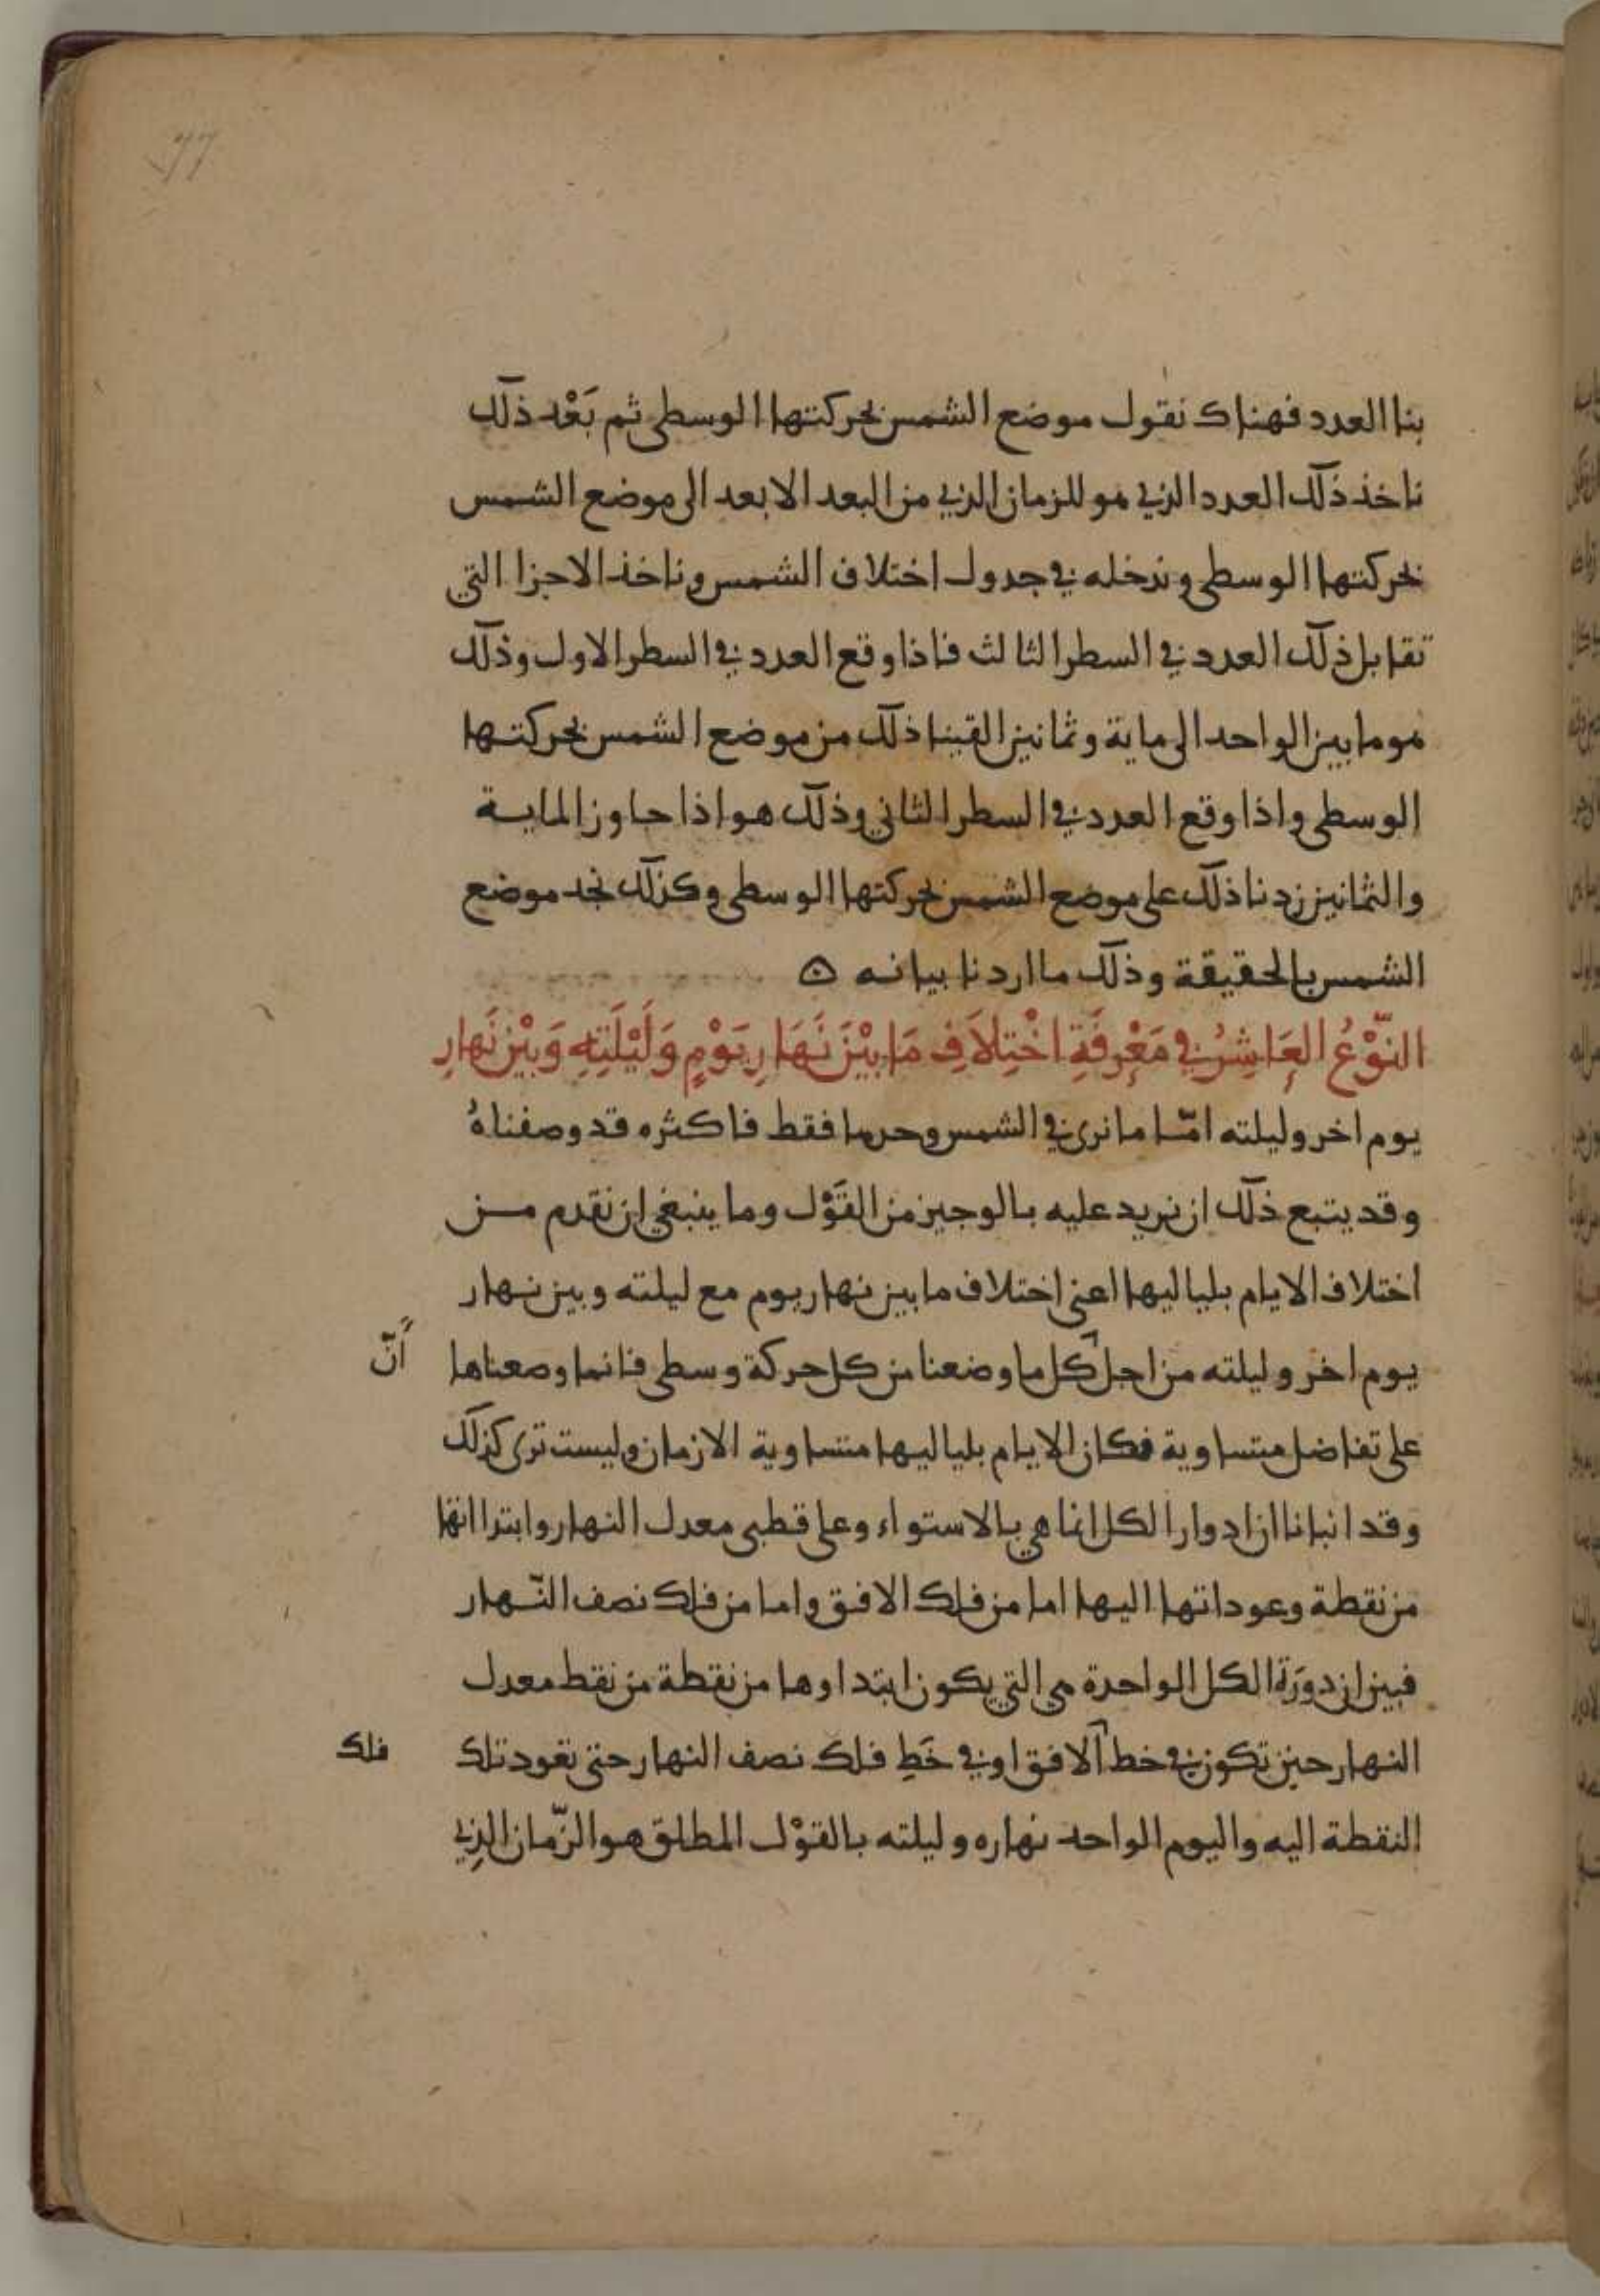 77
بنا العدد فهناك نقول موضع الشمس بحركتها الوسطى ثم بَعْد ذلك
ناخذ ذلك العدد الذي هو للزمان الذي من البعد الابعد الى موضع الشمس
بحركتها الوسطى وندخله في جدول اختلاف الشمس وناخذ الاجزا التي
تقابل ذلك العدد في السطر الثالث فاذا وقع العدد في السطر الاول وذلك
هو ما بين الواحد الى ماية وثمانين القينا ذلك من موضع الشمس بحركتها
الوسطى واذا وقع العدد في السطر الثاني وذلك هو اذا جاوز الماية
والثمانين زدنا ذلك على موضع الشمس بحركتها الوسطى وكذلك نجد موضع
الشمس بالحقيقة وذلك ما اردنا بيانه
النَّوْعُ العَاشِرُ في مَعْرِفَةِ اخْتِلَافِ مَا بَيْنَ نَهَارِ يَوْمٍ وَلَيْلَتِهِ وَبَيْن نَهارِ
يوم اخر وليلته امّا ما نرى في الشمس وحدها فقط فاكثره قد وصفناهُ
وقد يتبع ذلك ان نزيد عليه بالوجيز من القَوْل وما ينبغي ان نقدم من
اختلاف الايام بلياليها اعني اختلاف ما بين نهار يوم مع ليلته وبين نهار
يوم اخر وليلته من اجل كل ما وضعنا من كل حركة وسطى فانما وضعناها
أنّ
على تفاضل متساوية فكان الايام بلياليها متساوية الازمان وليست ترى كذلك
وقد انبانا ان ادوار الكل انما هي بالاستواء وعلى قطبي معدل النهار وابتداانها
من نقطة وعوداتها اليها اما من فلك الافق واما من فلك نصف النّهار
فبين ان دورَة الكل الواحدة هي التي يكون ابتداوها من نقطة من نقط معدل
النهار حين تكون في خط الافق او في خَطِ فلك نصف النهار حتى تعود تلك
فلك
النقطة اليه واليوم الواحد نهاره وليلته بالقوْل المطلق هو الزّمان الذِي